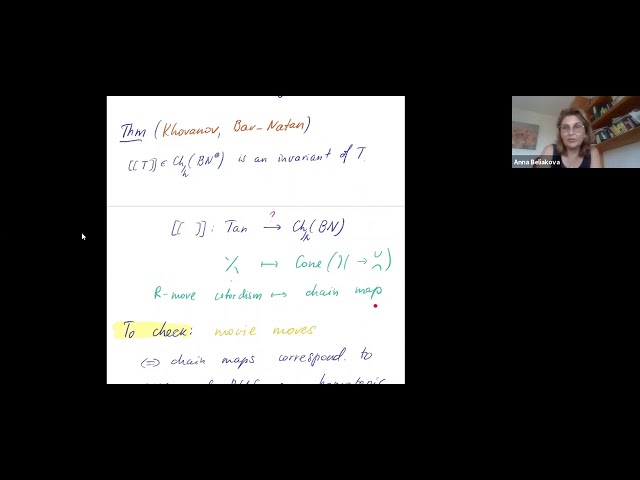 Thm (Khovanov, Bar-Natan)
[[T]] ∈ Ch/h (BN°) is an invariant of T.
?
[[ ]]: Tan → Ch/h (BN)
↦ Cone ( )( → )
R-move cobordism ↦ chain map
To check: movie moves
⇔ chain maps correspond. to
homotopic
Anna Beliakova